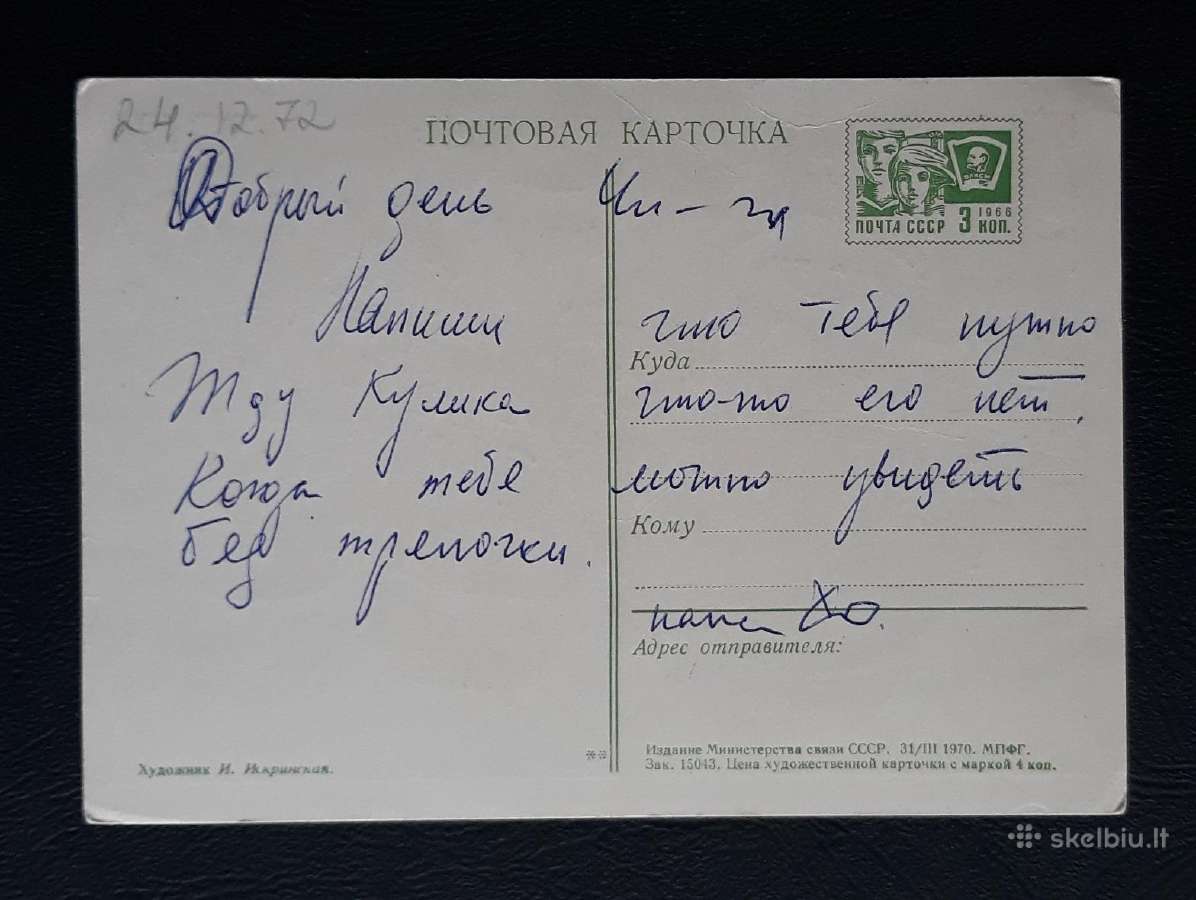 24.12.72
ПОЧТОВАЯ КАРТОЧКА
ВЛКСМ
1966
ПОЧТА СССР 3 КОП.
Добрый день
Напиши что тебе нужно
Куда
Жду Кулика что-то его нет.
Когда тебе можно увидеть
Кому
без трепочки.
папа Хо.
Адрес отправителя:
Издание Министерства связи СССР. 31/III 1970. МПФГ.
Зак. 15043. Цена художественной карточки с маркой 4 коп.
Художник И. Искринская.
skelbiu.lt